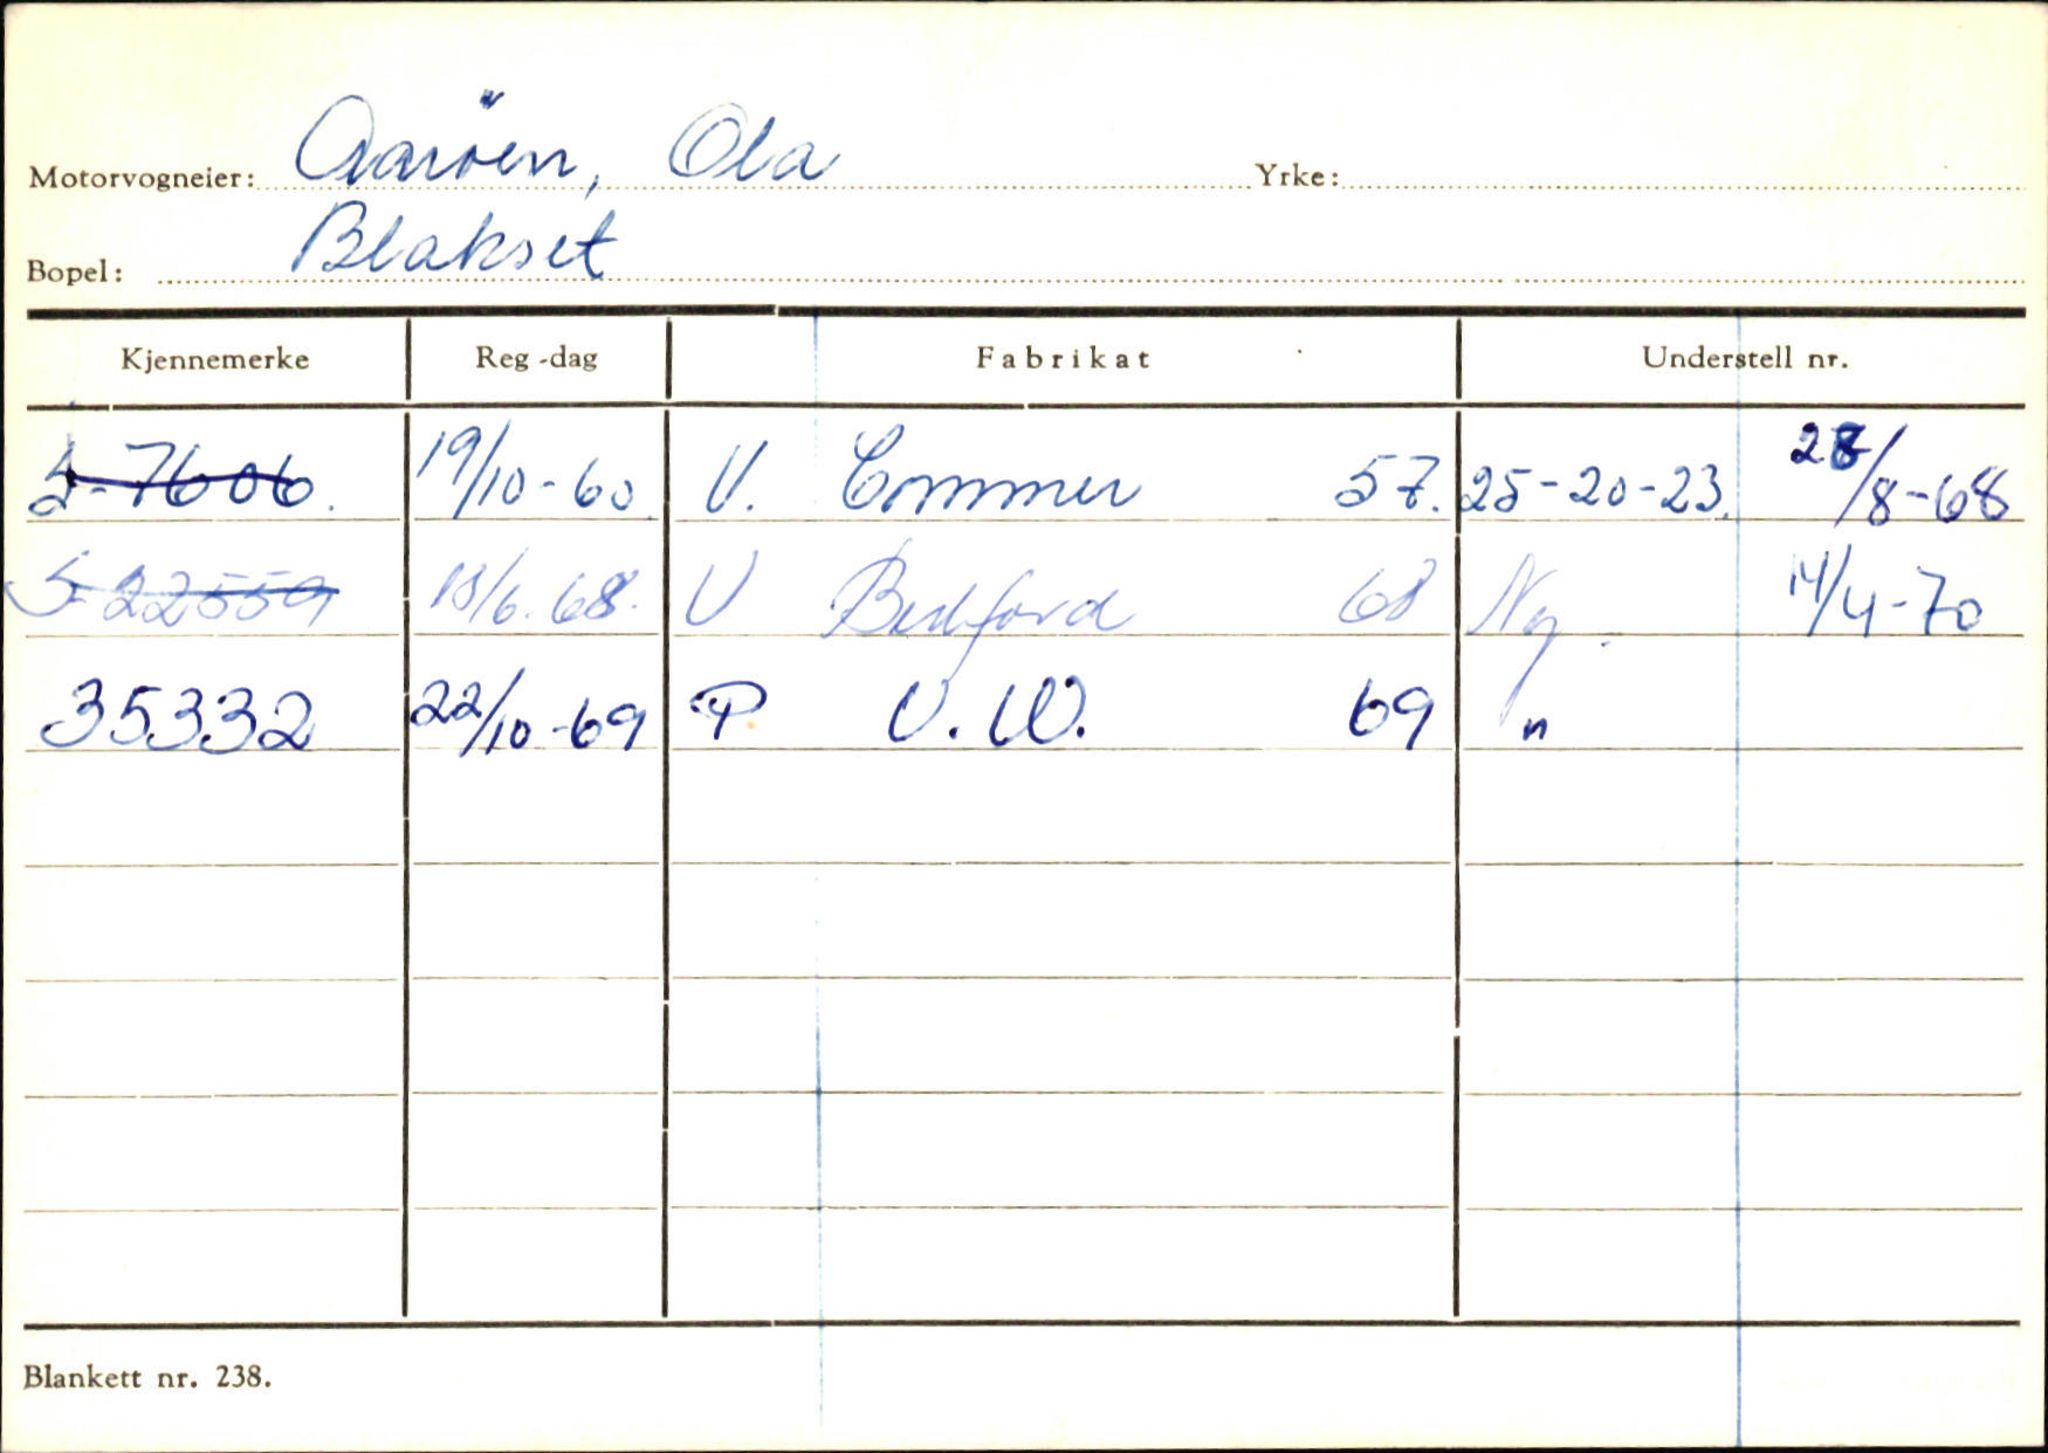 Motorvogneier: Aaröen, Ola Yrke:
Bopel: Blakset
Kjennemerke Reg-dag Fabrikat Understell nr.
S-7606. 19/10-60. V. Commer 57. 25-20-23. 28/8-68
S-22559 18/6.68. V Bedford 68 Ny. 14/4-70
35332 22/10-69 P V.W. 69 "
Blankett nr. 238.